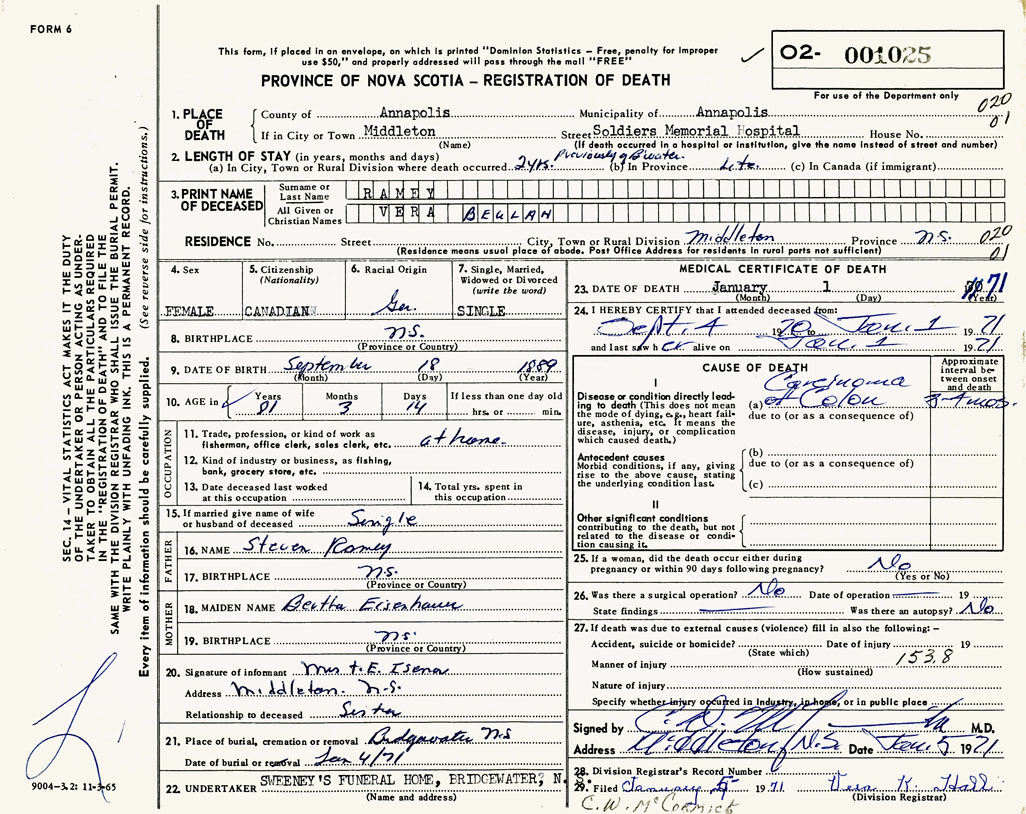 FORM 6
This form, if placed in an envelope, on which is printed "Dominion Statistics – Free, penalty for improper
use $50," and properly addressed will pass through the mail "FREE"
✓ O2- 001025
PROVINCE OF NOVA SCOTIA – REGISTRATION OF DEATH
For use of the Department only
020
01
1. PLACE OF DEATH
County of Annapolis Municipality of Annapolis
If in City or Town Middleton Street Soldiers Memorial Hospital House No.
(Name) (If death occurred in a hospital or institution, give the name instead of street and number)
2. LENGTH OF STAY (in years, months and days) Previously Bridgewater
(a) In City, Town or Rural Division where death occurred 2 yrs. (b) In Province Life (c) In Canada (if immigrant)
3. PRINT NAME OF DECEASED
Surname or Last Name RAMEY
All Given or Christian Names VERA BEULAH
RESIDENCE No. Street City, Town or Rural Division Middleton Province N.S. 020
(Residence means usual place of abode. Post Office Address for residents in rural parts not sufficient) 01
4. Sex
FEMALE
5. Citizenship
(Nationality)
CANADIAN
6. Racial Origin
Ger.
7. Single, Married,
Widowed or Divorced
(write the word)
SINGLE
8. BIRTHPLACE N.S.
(Province or Country)
9. DATE OF BIRTH September 18 1889
(Month) (Day) (Year)
10. AGE in ✓ Years Months Days If less than one day old
81 3 14 hrs. or min.
OCCUPATION
11. Trade, profession, or kind of work as
fisherman, office clerk, sales clerk, etc. at home.
12. Kind of industry or business, as fishing,
bank, grocery store, etc.
13. Date deceased last worked
at this occupation
14. Total yrs. spent in
this occupation
15. If married give name of wife
or husband of deceased Single
FATHER
16. NAME Steven Ramey
17. BIRTHPLACE N.S.
(Province or Country)
MOTHER
18. MAIDEN NAME Bertha Eisenhauer
19. BIRTHPLACE N.S.
(Province or Country)
20. Signature of informant Mrs. E. Isenor
Address Middleton. N.S.
Relationship to deceased Sister
21. Place of burial, cremation or removal Bridgewater N.S
Date of burial or removal Jan 4/71
22. UNDERTAKER SWEENEY'S FUNERAL HOME, BRIDGEWATER, N. S.
(Name and address)
MEDICAL CERTIFICATE OF DEATH
23. DATE OF DEATH January 1 71
(Month) (Day) (Year)
24. I HEREBY CERTIFY that I attended deceased from:
Sept. 4 1970 to Jan. 1 1971
and last saw her alive on Jan. 1 1971
CAUSE OF DEATH
Approximate
interval be-
tween onset
and death
I
Disease or condition directly lead-
ing to death (This does not mean
the mode of dying, e.g., heart fail-
ure, asthenia, etc. It means the
disease, injury, or complication
which caused death.)
Carcinoma
(a) of Colon 3-4 mos.
due to (or as a consequence of)
Antecedent causes
Morbid conditions, if any, giving
rise to the above cause, stating
the underlying condition last.
(b)
due to (or as a consequence of)
(c)
II
Other significant conditions
contributing to the death, but not
related to the disease or condi-
tion causing it.
25. If a woman, did the death occur either during
pregnancy or within 90 days following pregnancy? No
(Yes or No)
26. Was there a surgical operation? No Date of operation 19
State findings Was there an autopsy? No
27. If death was due to external causes (violence) fill in also the following: –
Accident, suicide or homicide? Date of injury 19
(State which) 153.8
Manner of injury
(How sustained)
Nature of injury
Specify whether injury occurred in Industry, in home, or in public place
Signed by M.D.
Address Middleton, N.S. Date Jan 5 1971
28. Division Registrar's Record Number
29. Filed January 5 1971 Vera K. Hall
(Division Registrar)
C.W. McCormick
SEC. 14 – VITAL STATISTICS ACT MAKES IT THE DUTY
OF THE UNDERTAKER OR PERSON ACTING AS UNDER-
TAKER TO OBTAIN ALL THE PARTICULARS REQUIRED
IN THE "REGISTRATION OF DEATH" AND TO FILE THE
SAME WITH THE DIVISION REGISTRAR WHO SHALL ISSUE THE BURIAL PERMIT.
WRITE PLAINLY WITH UNFADING INK. THIS IS A PERMANENT RECORD.
Every item of information should be carefully supplied. (See reverse side for instructions.)
9004-3.2: 11-3-65